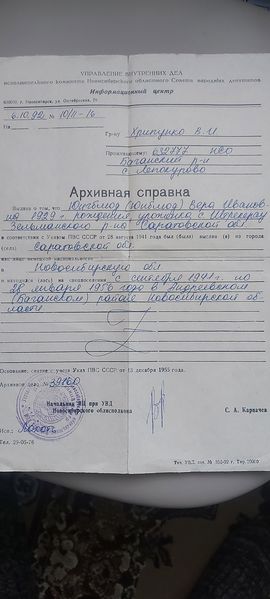 УПРАВЛЕНИЕ ВНУТРЕННИХ ДЕЛ
исполнительного комитета Новосибирского областного Совета народных депутатов
Информационный центр
г. Новосибирск, ул. Октябрьская,
6.10.92 № 10/11-16
На
Гр-ну Хрипунко В.И
Проживающему: 632777 НСО
Баганский р-н
с. Лепокурово
Архивная справка
Выдана в том, что Вера Иванов-
на 1929 г. рождения, уроженка с.
Зельманского р-на Саратовской обл.
в соответствии с Указом ПВС СССР от 28 августа 1941 года был (была) выслан (а) из города
(села) Саратовской обл.
как лицо немецкой национальности
в Новосибирскую обл.
и находился (лась) на спецпоселении с сентября 1941 г. по
28 января 1956 года в Андреевском
(Баганском) районе Новосибирской об-
ласти.
Основание снятия с учета Указ ПВС СССР от 13 декабря 1955 года.
Архивное дело № 39160
Начальник ИЦ при УВД
Новосибирского облисполкома
С. А. Карпачев
Исп.:
Тел. 29-05-76